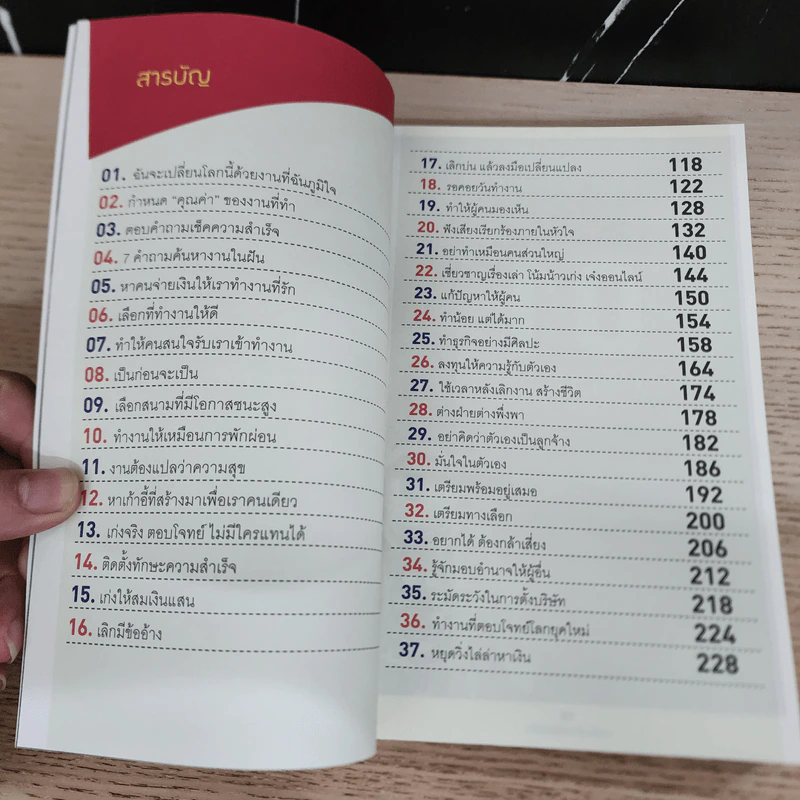 สารบัญ
01. ฉันจะเปลี่ยนโลกนี้ด้วยงานที่ฉันภูมิใจ
02. กำหนด “คุณค่า” ของงานที่ทำ
03. ตอบคำถามเช็คความสำเร็จ
04. 7 คำถามค้นหางานในฝัน
05. หาคนจ่ายเงินให้เราทำงานที่รัก
06. เลือกที่ทำงานให้ดี
07. ทำให้คนสนใจรับเราเข้าทำงาน
08. เป็นก่อนจะเป็น
09. เลือกสนามที่มีโอกาสชนะสูง
10. ทำงานให้เหมือนการพักผ่อน
11. งานต้องแปลว่าความสุข
12. หาเก้าอี้ที่สร้างมาเพื่อเราคนเดียว
13. เก่งจริง ตอบโจทย์ ไม่มีใครแทนได้
14. ติดตั้งทักษะความสำเร็จ
15. เก่งให้สมเงินแสน
16. เลิกมีข้ออ้าง
17. เลิกบ่น แล้วลงมือเปลี่ยนแปลง 118
18. รอคอยวันทำงาน 122
19. ทำให้ผู้คนมองเห็น 128
20. ฟังเสียงเรียกร้องภายในหัวใจ 132
21. อย่าทำเหมือนคนส่วนใหญ่ 140
22. เชี่ยวชาญเรื่องเล่า โน้มน้าวเก่ง เจ๋งออนไลน์ 144
23. แก้ปัญหาให้ผู้คน 150
24. ทำน้อย แต่ได้มาก 154
25. ทำธุรกิจอย่างมีศิลปะ 158
26. ลงทุนให้ความรู้กับตัวเอง 164
27. ใช้เวลาหลังเลิกงาน สร้างชีวิต 174
28. ต่างฝ่ายต่างพึ่งพา 178
29. อย่าคิดว่าตัวเองเป็นลูกจ้าง 182
30. มั่นใจในตัวเอง 186
31. เตรียมพร้อมอยู่เสมอ 192
32. เตรียมทางเลือก 200
33. อยากได้ ต้องกล้าเสี่ยง 206
34. รู้จักมอบอำนาจให้ผู้อื่น 212
35. ระมัดระวังในการตั้งบริษัท 218
36. ทำงานที่ตอบโจทย์โลกยุคใหม่ 224
37. หยุดวิ่งไล่ล่าหาเงิน 228